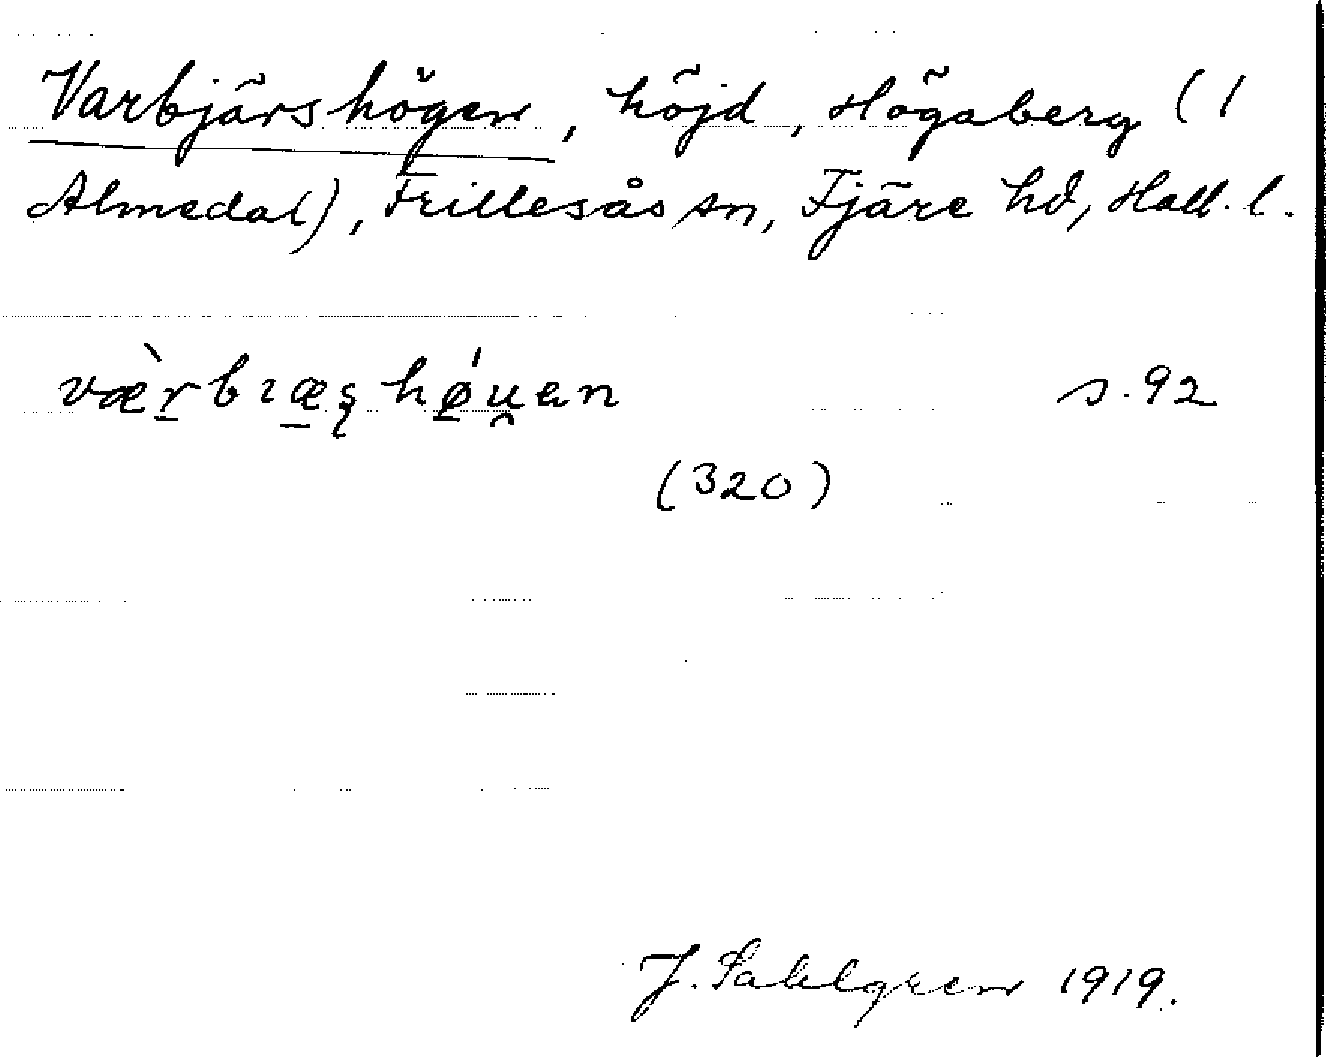 Varbjärshögen, höjd, Högaberg (1
Almedal), Frillesås sn, Fjäre hd, Hall. l.
væ̀r̠bıæ̠ʂhǿ̠u̯en s. 92
(320)
J. Sahlgren 1919.